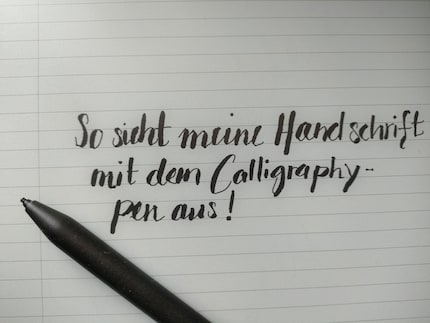 So sieht meine Handschrift
mit dem Calligraphy-
pen aus!